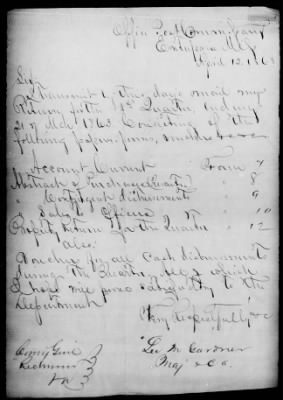 Office Post Comm Sary
Enterprise Miss
April 12. 1863
Sir
I transmit by this days mail my
Return for the 1st Quarter, Ending
31st Mch 1863 Consisting of the
following papers, forms, number
Account Current Form 7
Abstract of Purchases " 8
" Contingent disbursements " 9
" Officers " 10
Return for the Quarter " 12
Also
Voucher for all Cash disbursements
during the Quarter, all of which
I hope will prove satisfactory to the
Department
Very Respectfully &c
Comy Genl
Richmond
Va
Lee M. Gardner
Maj & C.S.